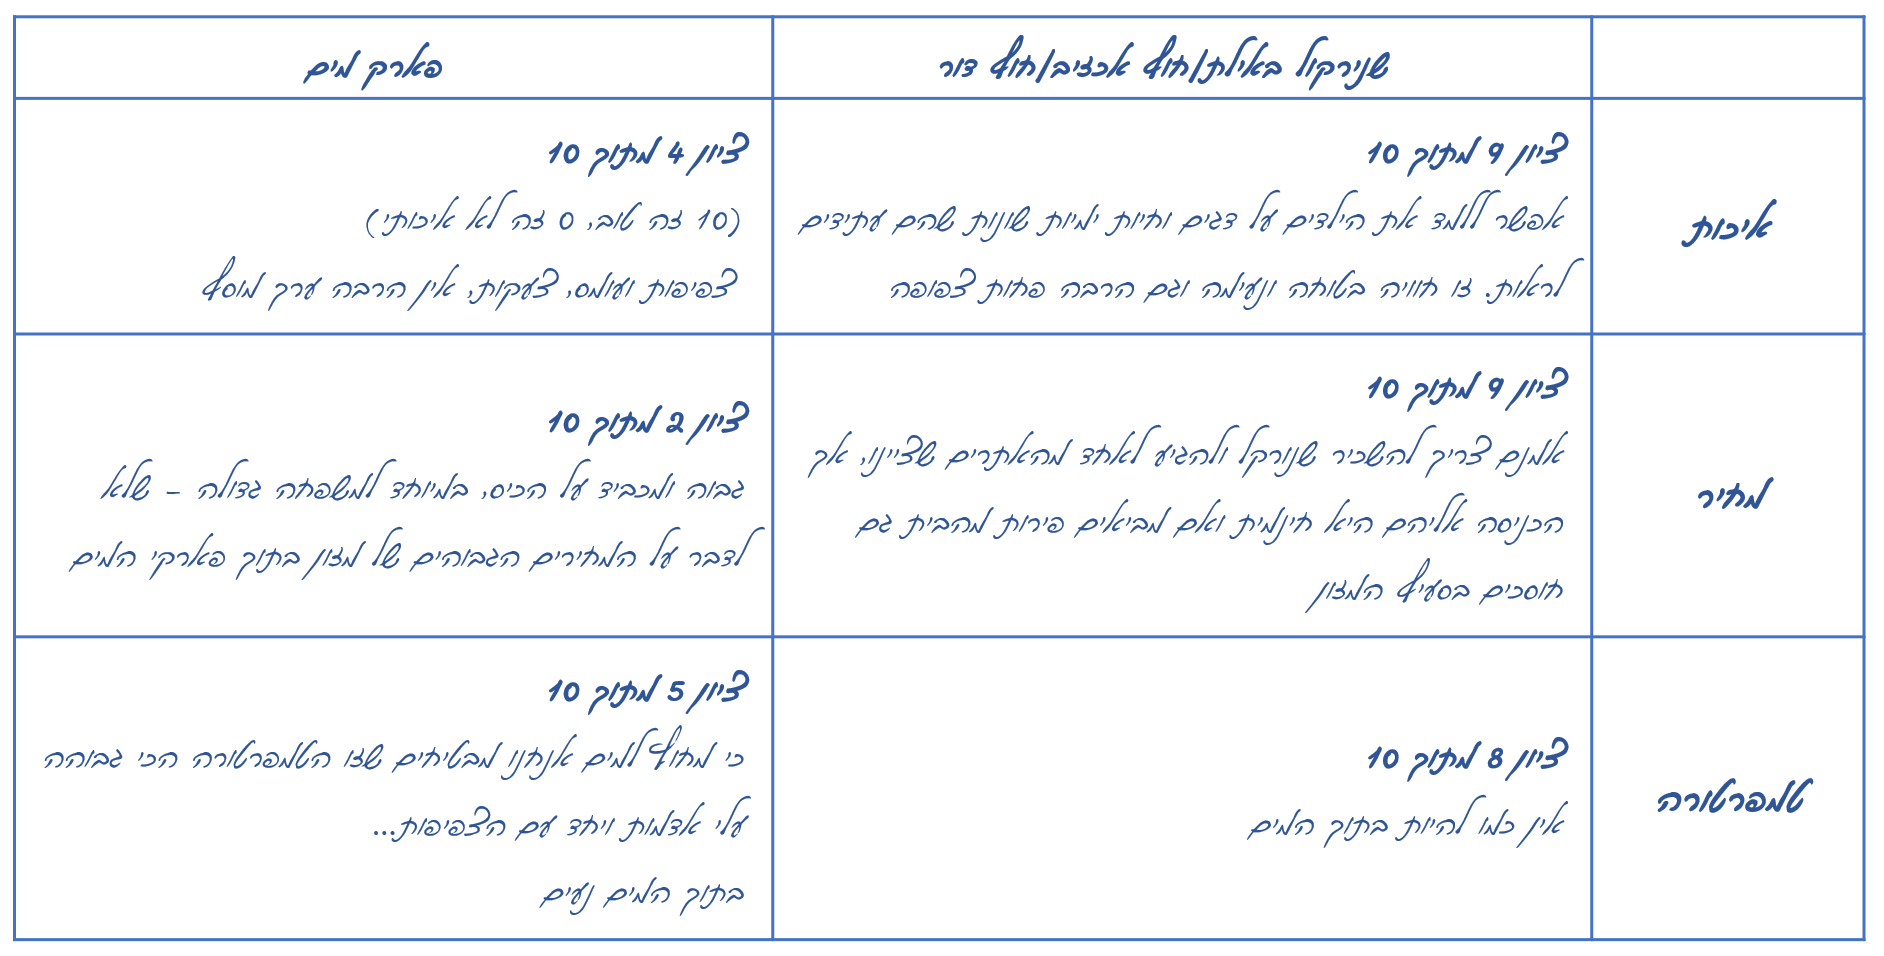 שנירקול באילת/חוף אכזיב/חוף דור
פארק מים
איכות
ציון 9 מתוך 10
אפשר ללמד את הילדים על דגים וחיות ימיות שונות שהם עתידים
לראות. זו חוויה בטוחה ונעימה וגם הרבה פחות צפופה
ציון 4 מתוך 10
(10 זה טוב, 0 זה לא איכותי)
צפיפות ועומס, צעקות, אין הרבה ערך מוסף
מחיר
ציון 9 מתוך 10
אמנם צריך להשכיר שנורקל ולהגיע לאחד מהאתרים שציינו, אך
הכניסה אליהם היא חינמית ואם מביאים פירות מהבית גם
חוסכים בסעיף המזון
ציון 2 מתוך 10
גבוה ומכביד על הכיס, במיוחד למשפחה גדולה – שלא
לדבר על המחירים הגבוהים של מזון בתוך פארקי המים
טמפרטורה
ציון 8 מתוך 10
אין כמו להיות בתוך המים
ציון 5 מתוך 10
כי מחוף למים אנחנו מבטיחים שזו הטמפרטורה הכי גבוהה
עלי אדמות ויחד עם הצפיפות...
בתוך המים נעים